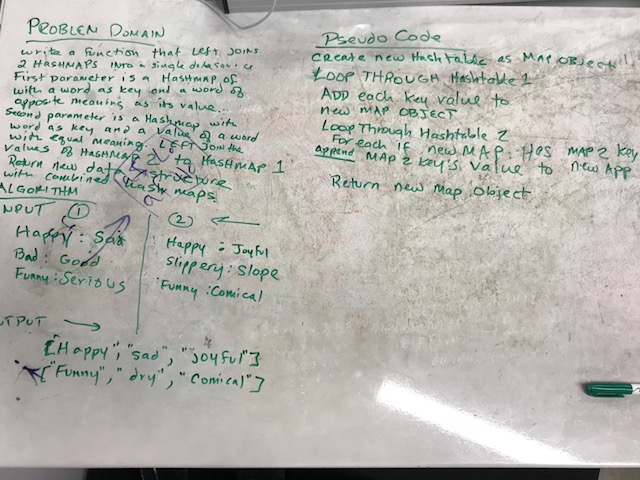 PROBLEM DOMAIN
write a function that Left JOINS
2 HASHMAPS INTO a single datasource
First parameter is a Hashmap of
with a word as key and a word of
opposite meaning as its value...
Second parameter is a Hashmap with
word as key and a value of a word
with equal meaning. LEFT JOIN the
values of HASHMAP 2 to HASHMAP 1
Return new data structure
with combined hash maps
ALGORITHM
INPUT ①
Happy : Sad
Bad : Good
Funny : Serious
②
Happy : Joyful
Slippery : Slope
Funny : Comical
OUTPUT →
["Happy", "sad", "joyful"]
["Funny", "dry", "Comical"]
Pseudo Code
Create new Hashtable as MAP OBJECT
LOOP THROUGH Hashtable 1
ADD each key value to
new MAP OBJECT
Loop Through Hashtable 2
For each if new MAP. Has MAP 2 key
append MAP 2 key's value to new App
Return new Map Object